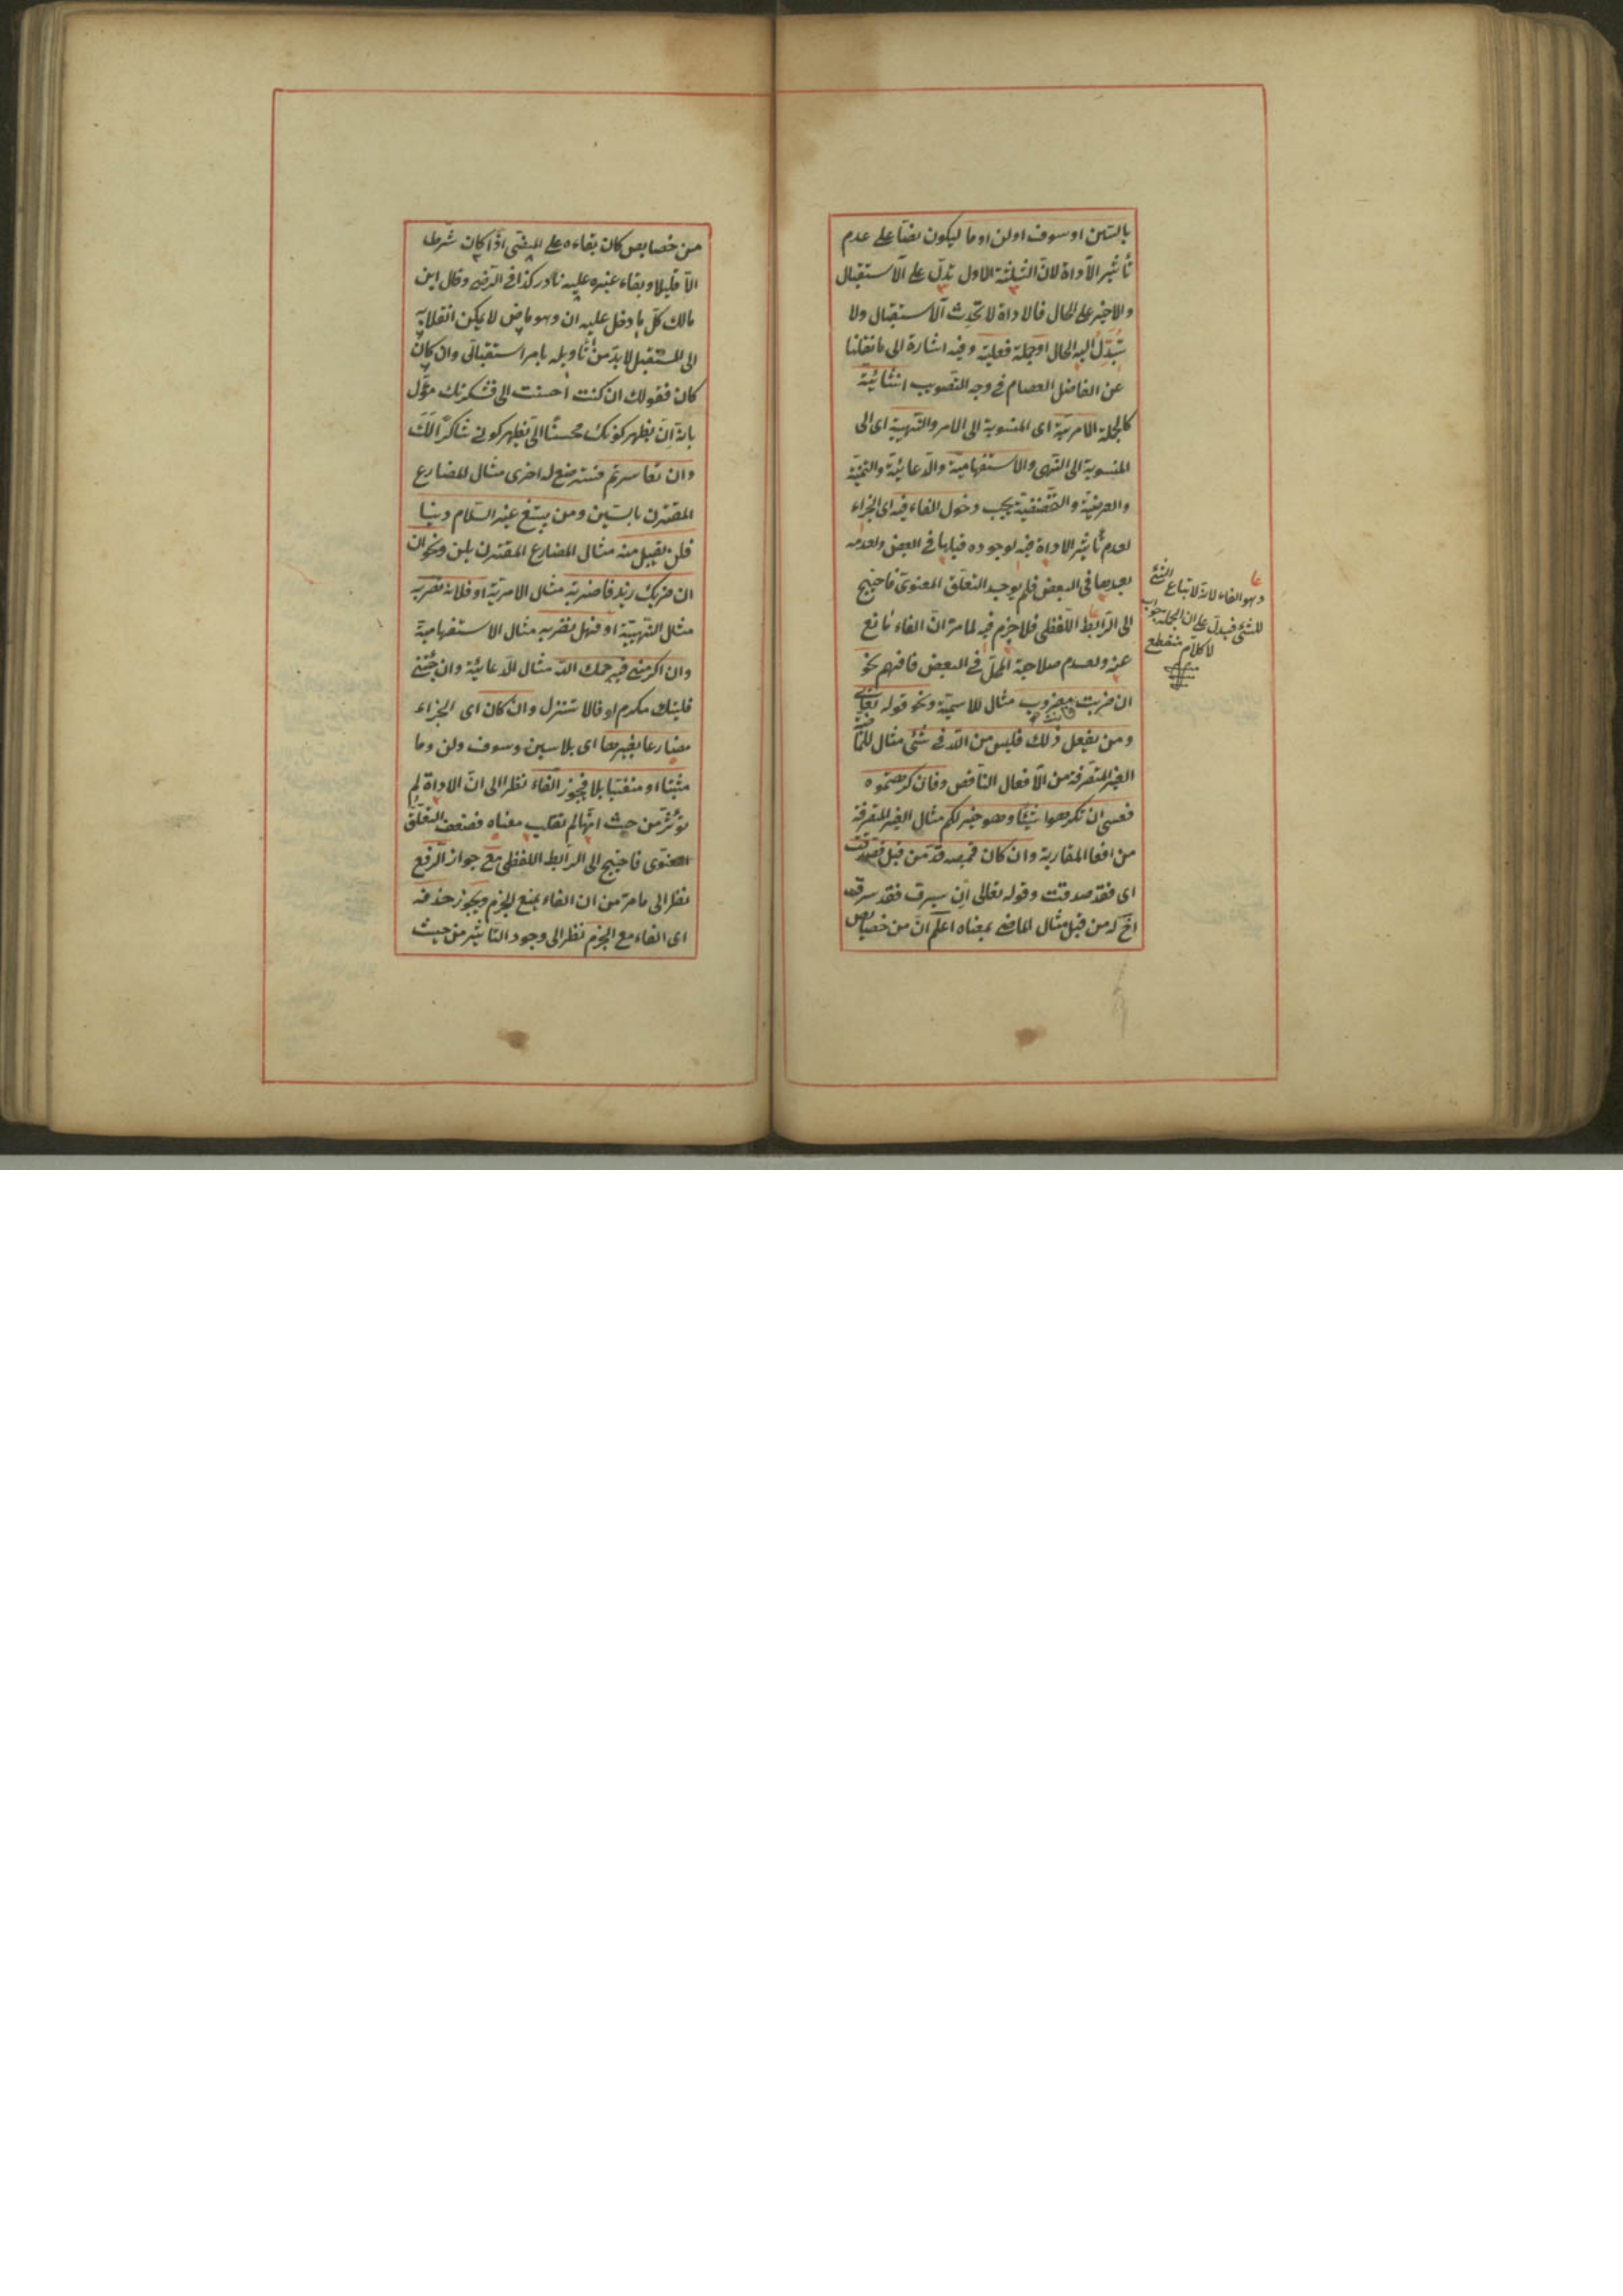 بالسين او سوف او لن او ما ليكون نصّا على عدم
تأثير الاداة لانّ الثلثة الاول تدلّ على الاستقبال
والاخير على الحال فالاداة لا تحدث الاستقبال ولا
تبدّل اليه الحال او جملة فعلية وفيه اشارة الى ما نقلنا
عن الفاضل العصام في وجه التصويب انشائيّة
كالجملة الامريّة اى المنسوبة الى الامر والنّهيية اى الى
المنسوبة الى النّهى والاستفهاميّة والدّعائيّة والتمنيّة
والعرضيّة و يجب دخول الفاء فيه اى الجزاء
لعدم تأثير الاداة فيه لوجوده قبلها في البعض ولعدمه
بعدها فى البعض فلم يوجد التعلّق المعنوىّ فاحتيج
الى الرّابط اللّفظى فلا جزم فيه لما مرّ انّ الفاء مانع
عنه ولعدم صلاحيّة المحلّ في البعض فافهم نحو
ان ضربت فانت مضروب مثال للاسميّة ونحو قوله تعالى
ومن يفعل ذلك فليس من اللّه في شئ مثال
الغير المتصرفة من الافعال الناقص وفان كرهتموه
فعسى ان تكرهوا شيئا وهو خير لكم مثال الغير المتصرفة
من افعا المقاربة وان كان قميصه قدّ من قبل فصدقت
اى فقد صدقت وقوله تعالى ان يسرق فقد سرق
اخ له من قبل مثال الماضى بمعناه اعلم انّ من خصايص
وهو الفاء لانّه لاتباع الشئ
للشئ فيدلّ على ان الجملة جواب
لا كلام منقطع
من خصايص كان بقاءه على المضى اذا كان شرطا
الّا قليلا وبقاء غيره عليه نادر كذا في الرّضى وقال ابن
مالك كلّ ما دخل عليه ان وهو ماض لا يمكن انقلابه
الى المستقبل لا بدّ من تأويله بامر استقبالى وان كان
كان فقولك ان كنت احسنت الى فشكرتك مؤّل
بانّه ان يظهر كونك محسنًا الىّ يظهر كونى شاكرًا لك
وان تعاسرتم فسترضع له اخرى مثال للمضارع
المقترن بالسّين ومن يبتغ غير السّلام دينا
فلن يقبل منه مثال المضارع المقترن بلن ونحو ان
ان ضربك زيد فاضربه مثال الامريّة او فلا تضربه
مثال النّهييّة او فهل تضربه مثال الاستفهاميّة
وان اكرمتنى فيرحمك اللّه مثال الدّعائيّة وان جئتنى
فليتك مكرم او فالا تنزل وان كان اى الجزاء
مضارعا بغيرها اى بلا سين وسوف ولن وما
مثبتا او منفيّا بلا فيجوز الفاء نظرا الى انّ الاداة لم
تؤثّر من حيث انّها لم تقلب معناه فضعف التعلّق
المعنوى فاحتيج الى الرّابط اللفظى مع جواز الرّفع
نظرا الى ما مرّ من ان الفاء يمنع الجزم ويجوز حذفه
اى الفاء مع الجزم نظرا الى وجود التّأثير من حيث